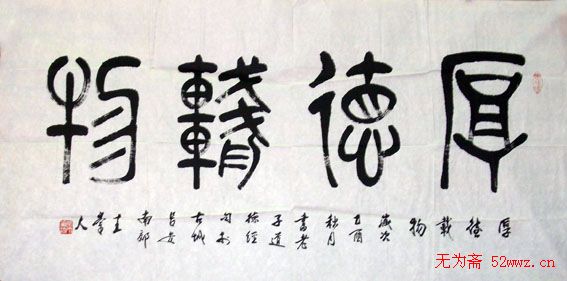 厚德載物
厚德載物歲次乙酉秋月書老子道德經句於古城長安南郊
人
无为斋 52wwz.cn